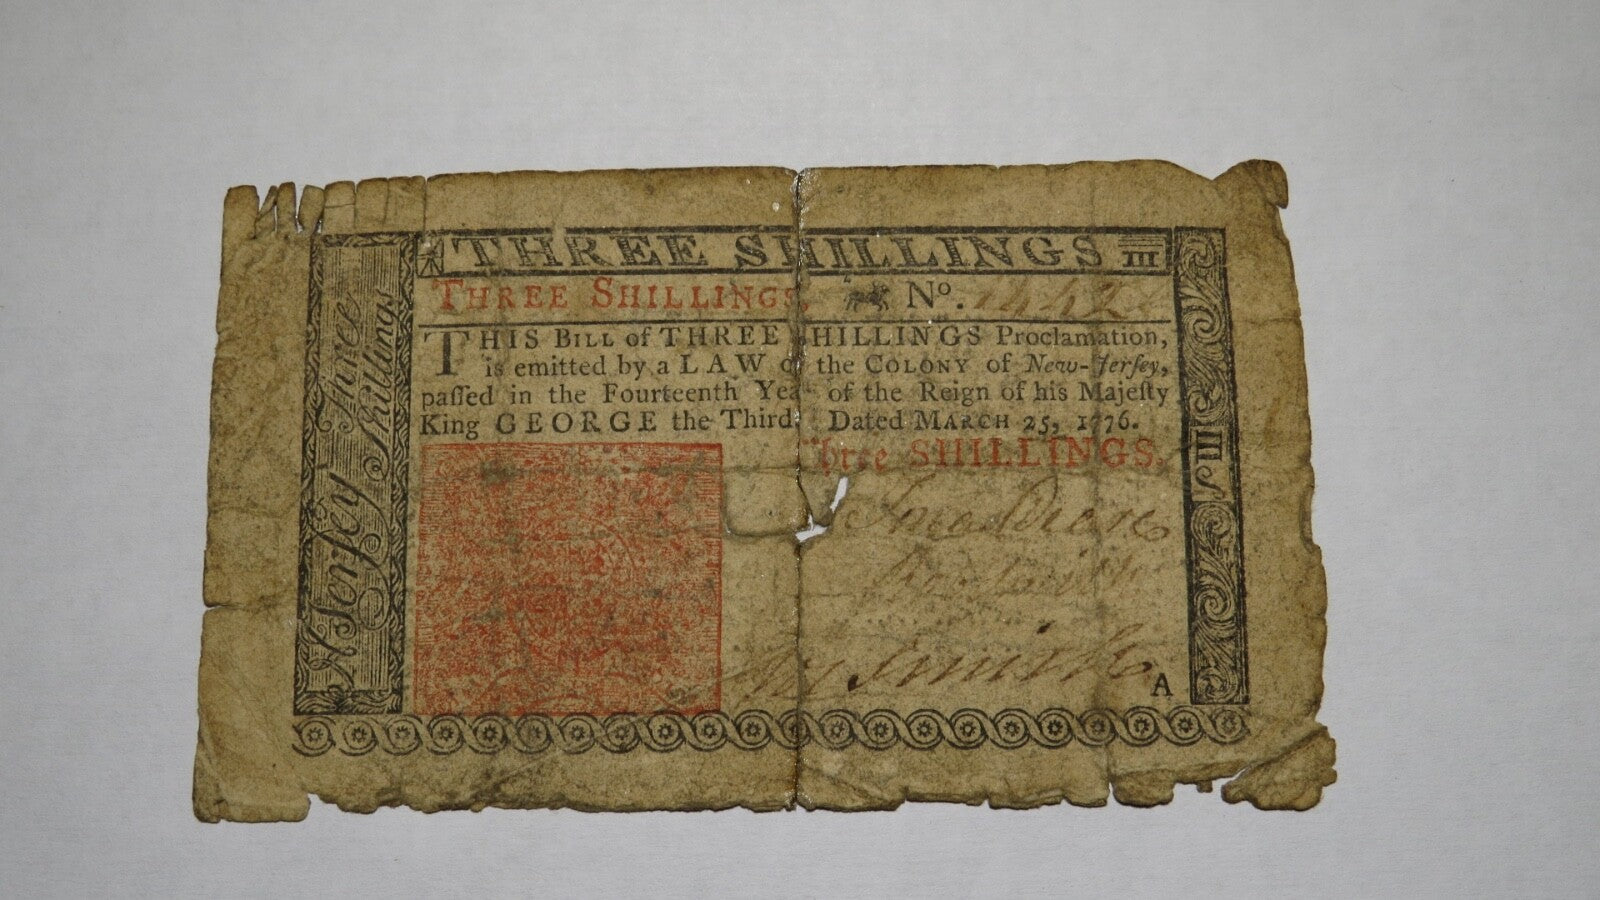 THREE SHILLINGS III
THREE SHILLINGS. No.
THIS BILL of THREE SHILLINGS Proclamation,
is emitted by a LAW of the COLONY of New-Jersey,
passed in the Fourteenth Year of the Reign of his Majesty
King GEORGE the Third. Dated MARCH 25, 1776.
Three SHILLINGS.
Smith
A
N Jersey Three Shillings
III S